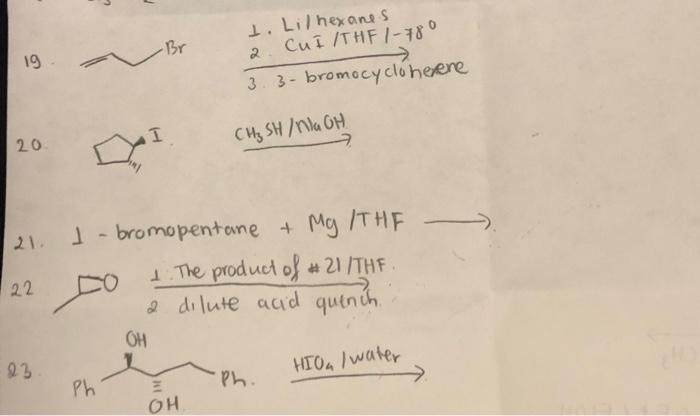 1. Li/hexanes
19. Br 2 CuI/THF/-78°
3. 3-bromocyclohexene
20. I CH3SH/NaOH
21. 1-bromopentane + Mg/THF
22 O 1. The product of #21/THF.
2 dilute acid quench
OH
23. Ph Ph. HIO4/water
OH